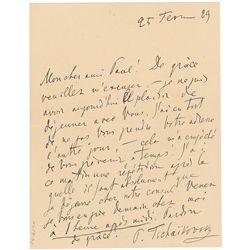 25 Fevr 89
Mon cher ami Paul! De grâce
veuillez m'excuser. Je ne puis
avoir aujourd'hui le plaisir de
déjeuner avec Vous. J'ai eu tort
de ne pas Vous prendre Votre adresse
l'autre jour, — cela m'a empêché
de Vous prévenir à temps. J'ai
ce matin une répétition après la
quelle il faut absolument que
je déjeune chez notre consul. Venez
demain chez moi
à 1 heure après midi. Pardon
de grâce!
P. Tschaikovsky